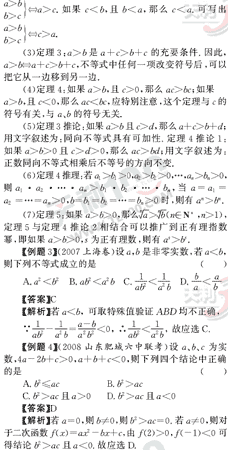 a>b
b>c}⇔a>c. 如果 c<b, 且 b<a, 那么 c<a. 可写出
a>b
b>c}⇔c>a.
(3)定理 3: a>b 是 a+c>b+c 的充要条件. 因此,
a>b⇔a+c>b+c, 不等式中任何一项改变符号后, 可以
把它从一边移到另一边.
(4)定理 4: 如果 a>b, 且 c>0, 那么 ac>bc; 如果
a>b, 且 c<0, 那么 ac<bc, 应特别注意, 这个定理与 c 的
符号有关, 与 a、b 的符号无关.
(5)定理 3 推论: 如果 a>b 且 c>d, 那么 a+c>b+d;
用文字叙述为: 同向不等式具有可加性. 定理 4 推论 1:
如果 a>b>0 且 c>d>0, 那么 ac>bd; 用文字叙述为:
正数同向不等式相乘后不等号的方向不变.
(6)定理 4 推理: 若 a₁>b₁>0, a₂>b₂>0, …, aₙ>bₙ>0,
则 a₁·a₂·…·aₙ>b₁·b₂·…·bₙ, 当 a=a₁=
a₂=…=aₙ>0, b=b₁=b₂=…=bₙ≥0 时, 则有 aⁿ>bⁿ.
(7)定理 5: 如果 a>b>0, 那么 ⁿ√a>ⁿ√b(n∈N*, n>1),
定理 5 与定理 4 推论 2 相结合可以推广到正有理指数
幂, 即如果 a>b>0, s 为正有理数, 则有 aˢ>bˢ.
【例题 3】(2007 上海卷)设 a,b 是非零实数, 若 a<b,
则下列不等式成立的是 ( )
A. a²<b² B. ab²<a²b C. 1/ab²<1/a²b D. b/a<a/b
【答案】C
【解析】若 a<b, 可取特殊值验证 ABD 均不正确,
∵ 1/ab²−1/a²b=(a−b)/a²b²<0, ∴ 1/ab²<1/a²b, 故应选 C.
【例题 4】(2008 山东肥城六中联考)设 a、b、c 为实
数, 4a−2b+c>0, a+b+c<0, 则下列四个结论中正确
的是 ( )
A. b²≤ac B. b²>ac
C. b²>ac 且 a>0 D. b²>ac 且 a<0
【答案】D
【解析】若 a=0, 则 b≠0, 则 b²>ac=0. 若 a≠0, 则对
于二次函数 f(x)=ax²−bx+c, 由 f(2)>0, f(−1)<0 可
得结论 b²>ac 且 a<0. 故应选 D.